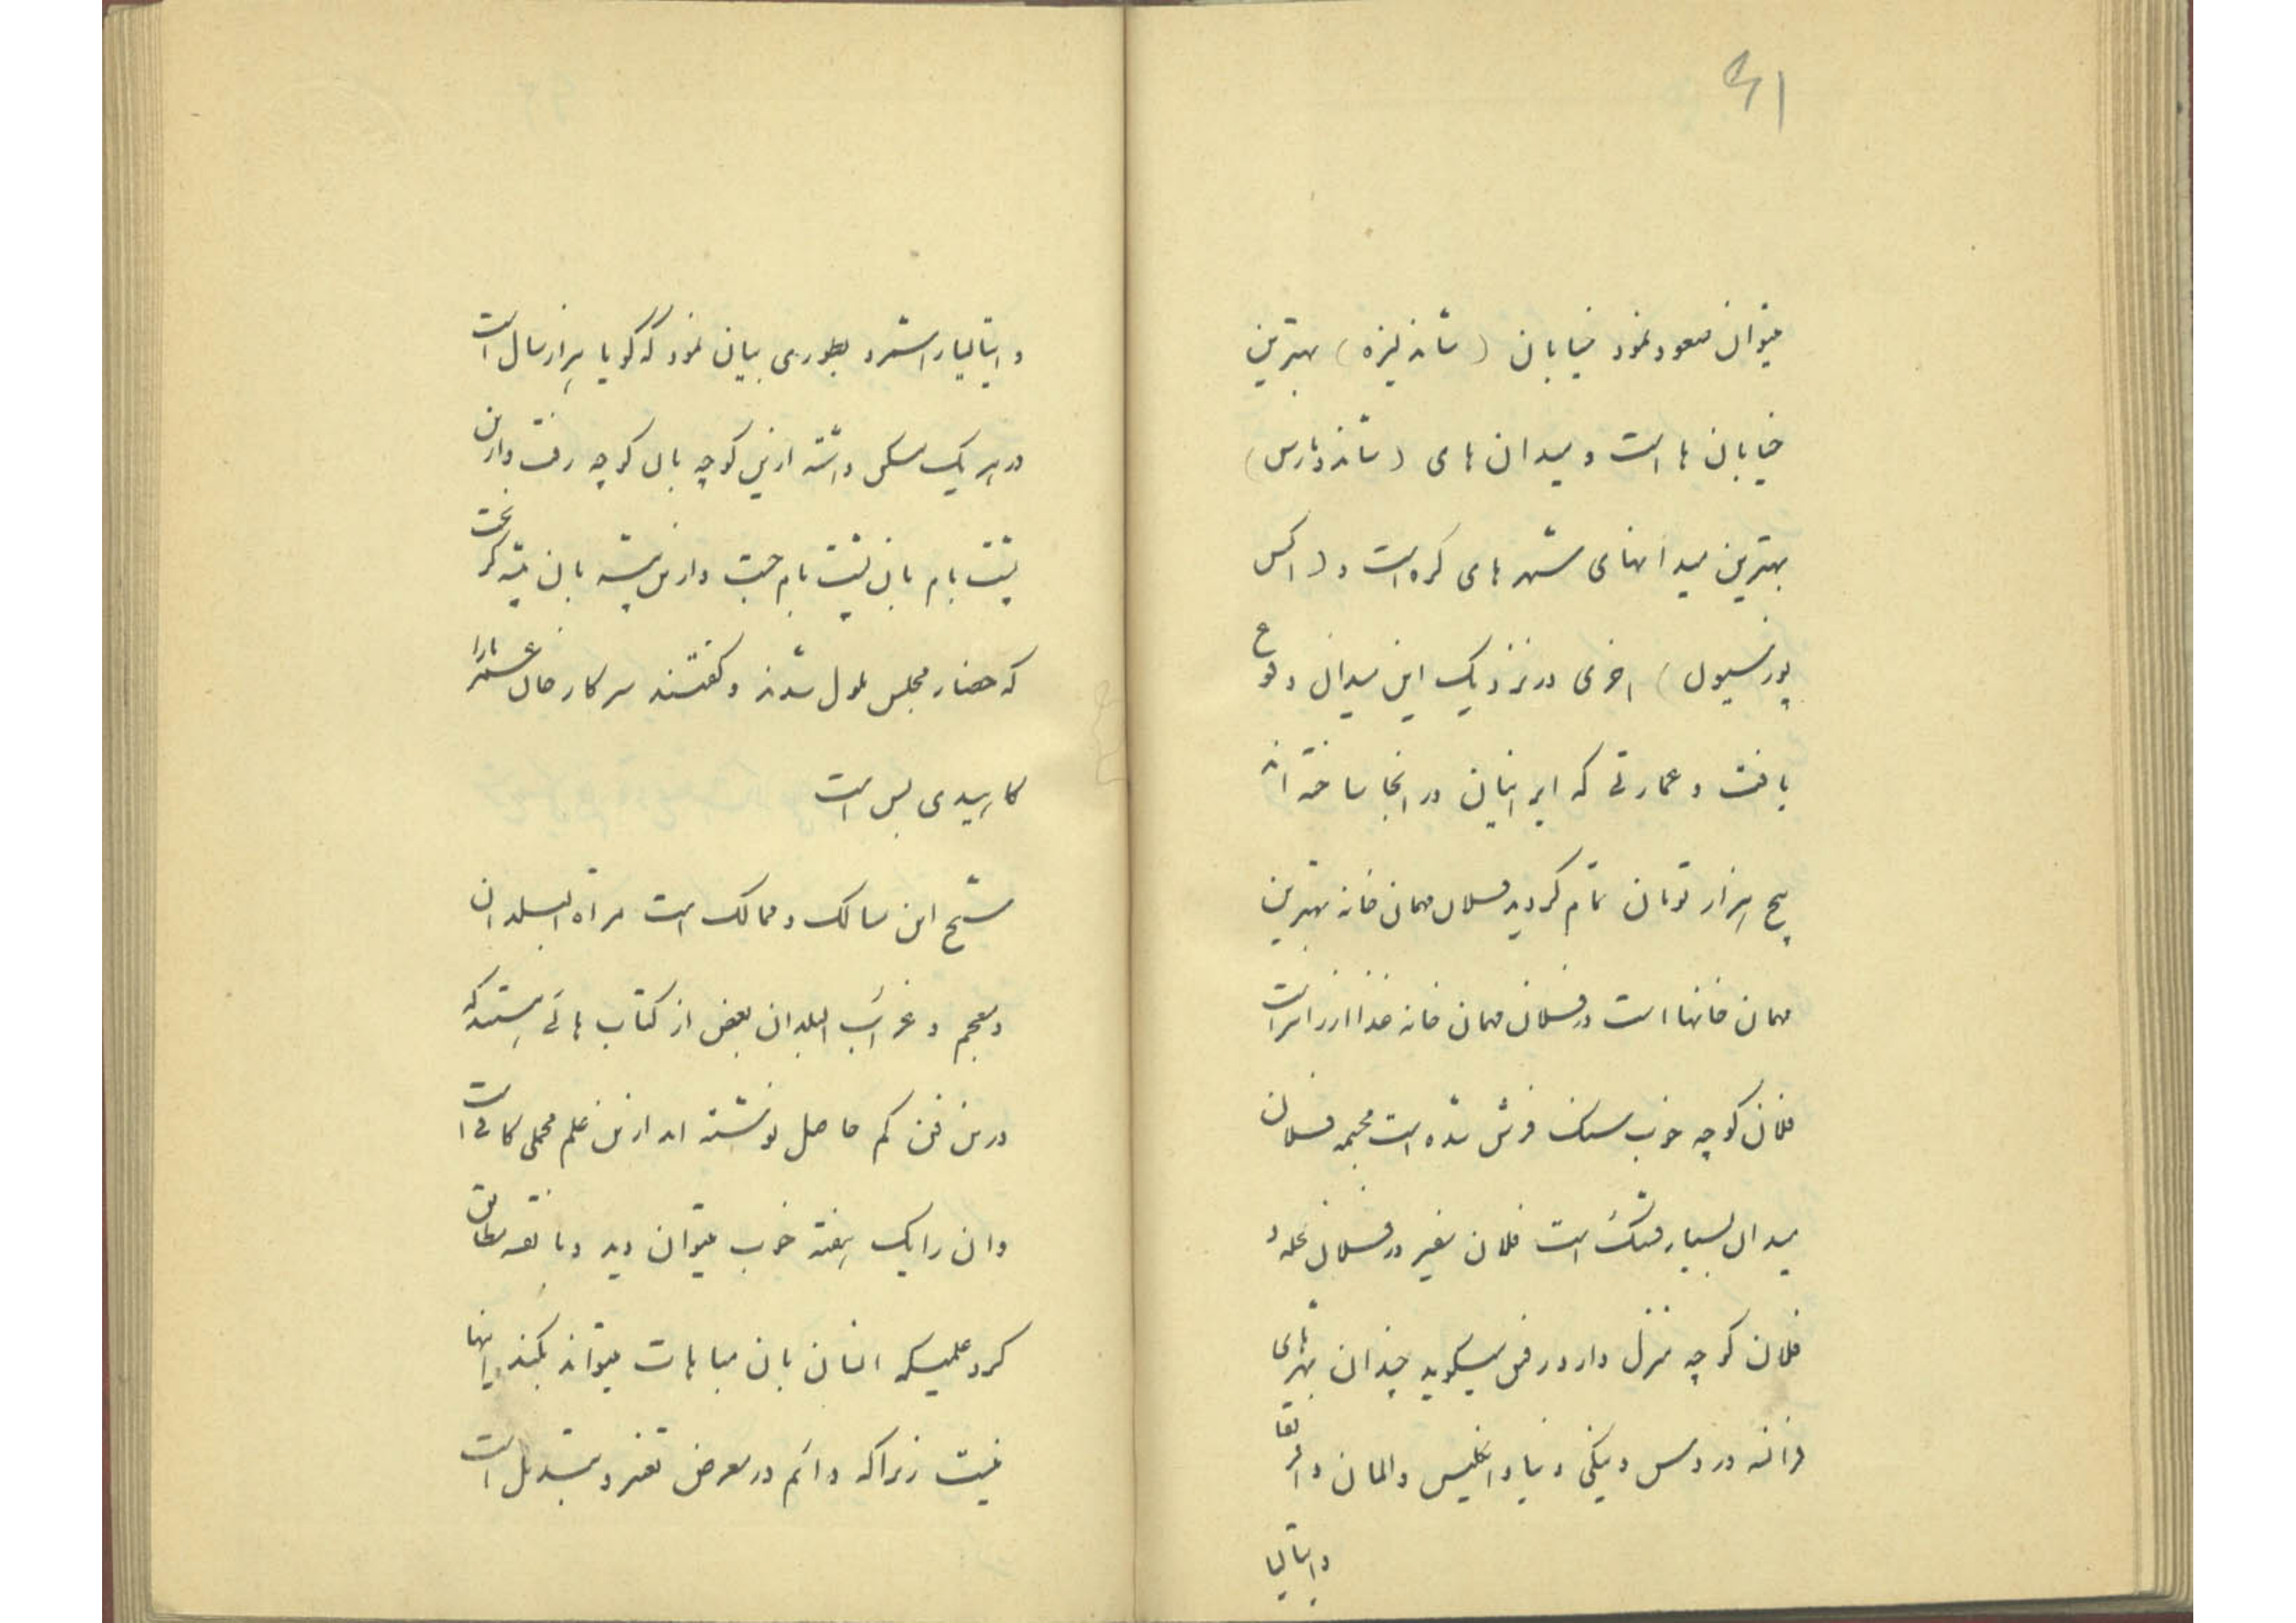 ۴۱
میتوان صعود نمود خیابان (شانزلیزه) بهترین
خیابان ها است و میدان های (شاندومارس)
بهترین میدانهای شهر های کره است و (اکس
پوزسیون) اخری در نزدیک این میدان وقوع
یافت و عمارتی که ایرانیان در انجا ساخته اند
پنج هزار تومان تمام گردید فلان مهمان خانه بهترین
مهمان خانها است در فلان مهمان خانه غذا ارزانتر است
فلان کوچه خوب سنک فرش شده است مجسمه فلان
میدان بسیار قشنگ است فلان سفیر در فلان محله و
فلان کوچه منزل دارد رفیق میگوید چندان شهرهای
فرانسه و روس و ینکی دنیا و انگلیس و المان و افریقا
و ایتالیا
و ایتالیا را شمرد بطوری بیان نمود که گویا هزار سال است
در هر یک مسکن داشته ازین کوچه بان کوچه رفت و ازین
پشت بام بان پشت بام جست و ازین پشته بان پشته گریخت
که حضار مجلس ملول شدند و گفتند سرکار خان عمر ما را
کاهیدی بس است
شیخ این مسالک و ممالک است مراة البلدان
و معجم و غرائب البلدان بعض از کتاب هائی هستند که
درین فن کم حاصل نوشته اند ازین علم مجملی کافی است
و ان را یک هفته خوب میتوان دید و با نقشه مطابق
کرد علمیکه انسان بان مباهات میتواند بکند اینها
نیست زیرا که دائم در معرض تغیر و تبدیل است